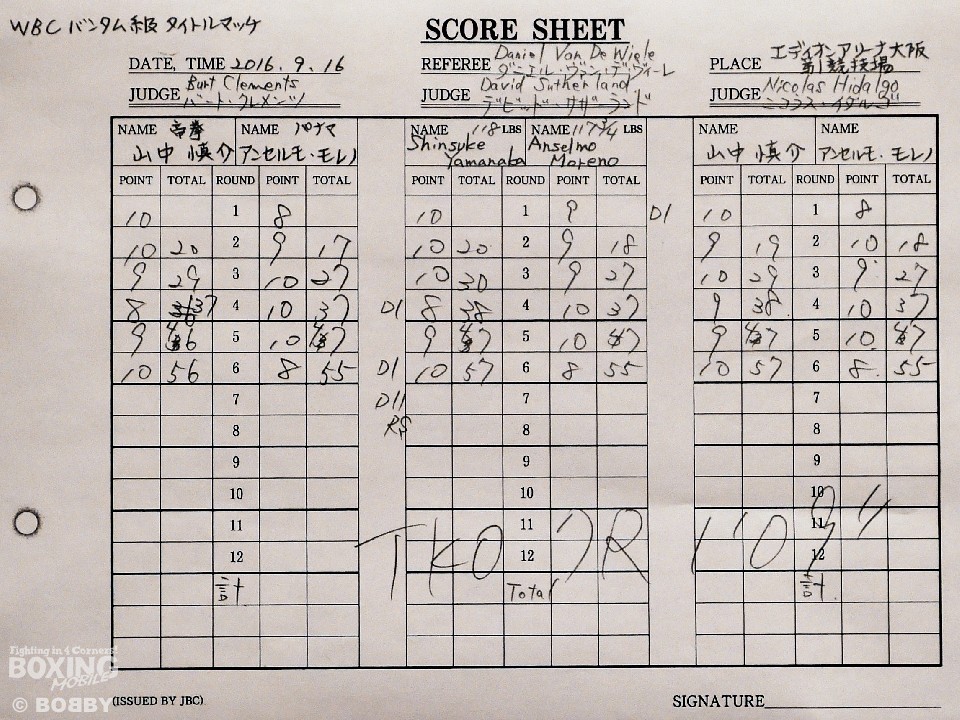 WBC バンタム級 タイトルマッチ
SCORE SHEET
DATE, TIME 2016.9.16 REFEREE Daniel Van De Wiele PLACE エディオンアリーナ大阪
ダニエル・ヴァン・デ・ヴィーレ 第1競技場
JUDGE Burt Clements JUDGE David Sutherland JUDGE Nicolas Hidalgo
バート・クレメンツ デビッド・サザーランド ニコラス・イダルゴ
NAME 帝拳 NAME パナマ NAME 118 LBS NAME 117 3/4 LBS NAME NAME
山中 慎介 アンセルモ・モレノ Shinsuke Yamanaka Anselmo Moreno 山中 慎介 アンセルモ・モレノ
POINT TOTAL ROUND POINT TOTAL POINT TOTAL ROUND POINT TOTAL POINT TOTAL ROUND POINT TOTAL
10 1 8 10 1 9 D1 10 1 8
10 20 2 9 17 10 20 2 9 18 9 19 2 10 18
9 29 3 10 27 10 30 3 9 27 10 29 3 9 27
8 37 4 10 37 D1 8 38 4 10 37 9 38 4 10 37
9 46 5 10 47 9 47 5 10 47 9 47 5 10 47
10 56 6 8 55 D1 10 57 6 8 55 10 57 6 8 55
7 D11 7 7
8 8 8
9 9 9
10 10 10
11 11 11
12 12 12
TKO 7R 1'09"
計 Total 計
Fighting in 4 Corners!
BOXING
MOBILE
© BOBBY
(ISSUED BY JBC) SIGNATURE